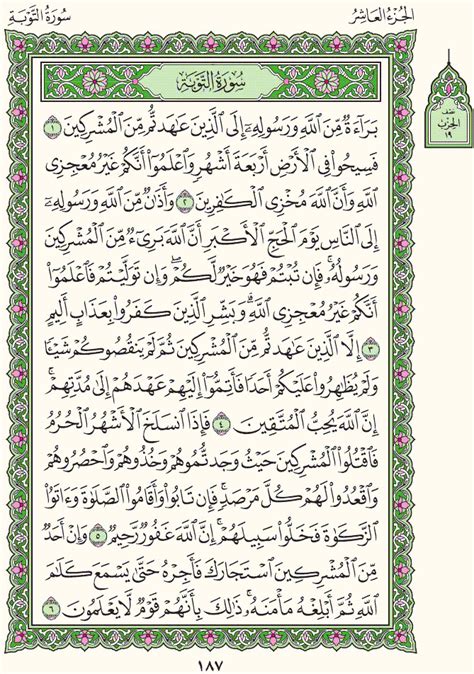 الجزء العاشر
سورة التوبة
سُورَةُ التَّوۡبَةِ
نصف
الحزب
١٩
بَرَآءَةٞ مِّنَ ٱللَّهِ وَرَسُولِهِۦٓ إِلَى ٱلَّذِينَ عَٰهَدتُّم مِّنَ ٱلۡمُشۡرِكِينَ ١
فَسِيحُواْ فِي ٱلۡأَرۡضِ أَرۡبَعَةَ أَشۡهُرٖ وَٱعۡلَمُوٓاْ أَنَّكُمۡ غَيۡرُ مُعۡجِزِي
ٱللَّهِ وَأَنَّ ٱللَّهَ مُخۡزِي ٱلۡكَٰفِرِينَ ٢ وَأَذَٰنٞ مِّنَ ٱللَّهِ وَرَسُولِهِۦٓ
إِلَى ٱلنَّاسِ يَوۡمَ ٱلۡحَجِّ ٱلۡأَكۡبَرِ أَنَّ ٱللَّهَ بَرِيٓءٞ مِّنَ ٱلۡمُشۡرِكِينَ
وَرَسُولُهُۥۚ فَإِن تُبۡتُمۡ فَهُوَ خَيۡرٞ لَّكُمۡۖ وَإِن تَوَلَّيۡتُمۡ فَٱعۡلَمُوٓاْ
أَنَّكُمۡ غَيۡرُ مُعۡجِزِي ٱللَّهِۗ وَبَشِّرِ ٱلَّذِينَ كَفَرُواْ بِعَذَابٍ أَلِيمٍ
٣ إِلَّا ٱلَّذِينَ عَٰهَدتُّم مِّنَ ٱلۡمُشۡرِكِينَ ثُمَّ لَمۡ يَنقُصُوكُمۡ شَيۡـٔٗا
وَلَمۡ يُظَٰهِرُواْ عَلَيۡكُمۡ أَحَدٗا فَأَتِمُّوٓاْ إِلَيۡهِمۡ عَهۡدَهُمۡ إِلَىٰ مُدَّتِهِمۡۚ
إِنَّ ٱللَّهَ يُحِبُّ ٱلۡمُتَّقِينَ ٤ فَإِذَا ٱنسَلَخَ ٱلۡأَشۡهُرُ ٱلۡحُرُمُ
فَٱقۡتُلُواْ ٱلۡمُشۡرِكِينَ حَيۡثُ وَجَدتُّمُوهُمۡ وَخُذُوهُمۡ وَٱحۡصُرُوهُمۡ
وَٱقۡعُدُواْ لَهُمۡ كُلَّ مَرۡصَدٖۚ فَإِن تَابُواْ وَأَقَامُواْ ٱلصَّلَوٰةَ وَءَاتَوُاْ
ٱلزَّكَوٰةَ فَخَلُّواْ سَبِيلَهُمۡۚ إِنَّ ٱللَّهَ غَفُورٞ رَّحِيمٞ ٥ وَإِنۡ أَحَدٞ
مِّنَ ٱلۡمُشۡرِكِينَ ٱسۡتَجَارَكَ فَأَجِرۡهُ حَتَّىٰ يَسۡمَعَ كَلَٰمَ
ٱللَّهِ ثُمَّ أَبۡلِغۡهُ مَأۡمَنَهُۥۚ ذَٰلِكَ بِأَنَّهُمۡ قَوۡمٞ لَّا يَعۡلَمُونَ ٦
١٨٧